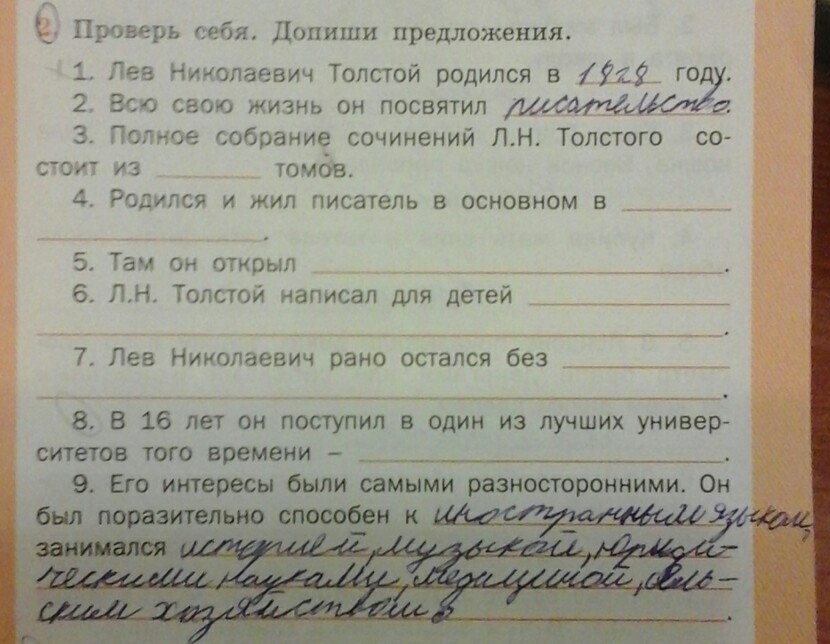 2. Проверь себя. Допиши предложения.
1. Лев Николаевич Толстой родился в 1828 году.
2. Всю свою жизнь он посвятил писательство.
3. Полное собрание сочинений Л.Н. Толстого со-
стоит из ________ томов.
4. Родился и жил писатель в основном в ________
________.
5. Там он открыл ________.
6. Л.Н. Толстой написал для детей ________
________.
7. Лев Николаевич рано остался без ________
________.
8. В 16 лет он поступил в один из лучших универ-
ситетов того времени – ________.
9. Его интересы были самыми разносторонними. Он
был поразительно способен к иностранным языкам,
занимался историей, музыкой, юриди-
ческими науками, медициной, сель-
ским хозяйством.